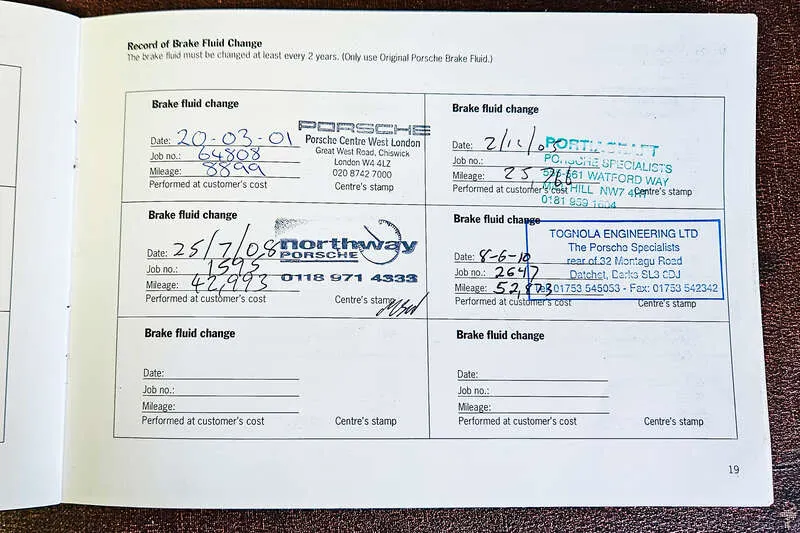 Record of Brake Fluid Change
The brake fluid must be changed at least every 2 years. (Only use Original Porsche Brake Fluid.)
Brake fluid change
Date: 20-03-01
Job no.: 64808
Mileage: 8899
Performed at customer's cost
Centre's stamp
PORSCHE
Porsche Centre West London
Great West Road, Chiswick
London W4 4LZ
020 8742 7000
Brake fluid change
Date: 2/12/05
Job no.:
Mileage: 25,766
Performed at customer's cost
Centre's stamp
PORSCHE SPECIALISTS
WATFORD WAY
HILL NW7
0181 959 1604
Brake fluid change
Date: 25/7/08
Job no.: 1595
Mileage: 42,993
Performed at customer's cost
Centre's stamp
northway
PORSCHE
0118 971 4333
Brake fluid change
Date: 8-6-10
Job no.: 2647
Mileage: 52,873
Performed at customer's cost
Centre's stamp
TOGNOLA ENGINEERING LTD
The Porsche Specialists
rear of 32 Montagu Road
Datchet, Berks SL3 9DJ
Tel: 01753 545053 - Fax: 01753 542342
Brake fluid change
Date:
Job no.:
Mileage:
Performed at customer's cost
Centre's stamp
Brake fluid change
Date:
Job no.:
Mileage:
Performed at customer's cost
Centre's stamp
19